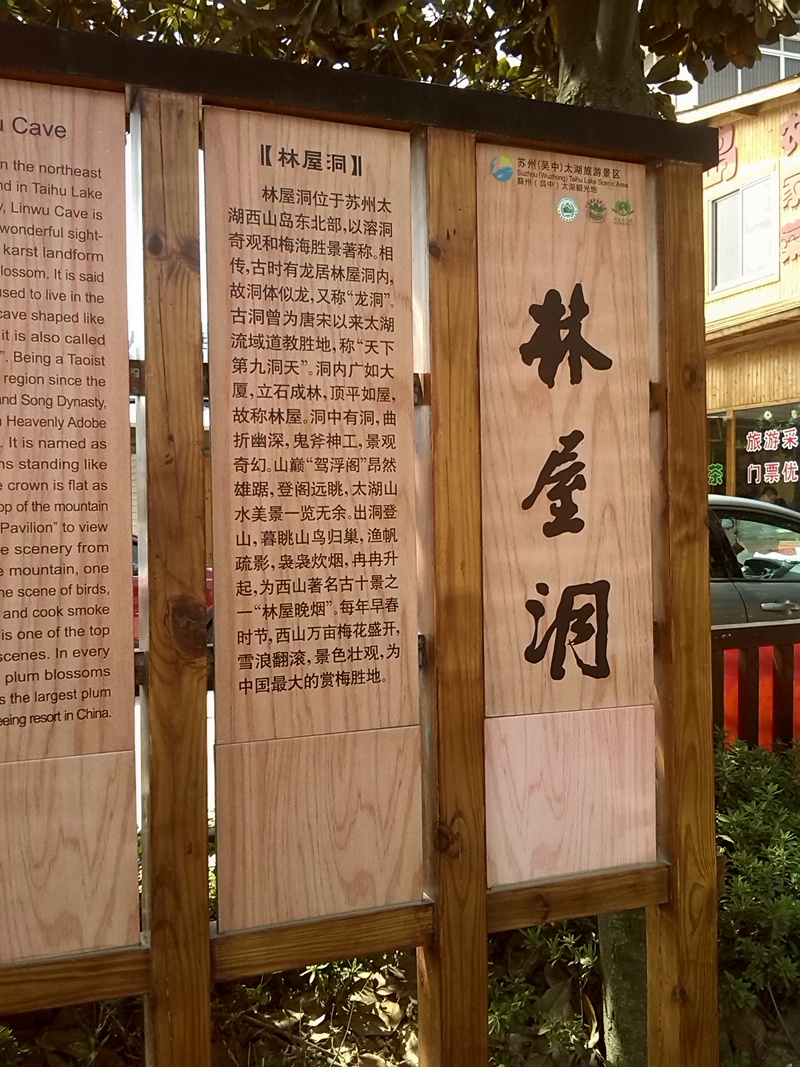 u Cave
n the northeast
nd in Taihu Lake
y, Linwu Cave is
wonderful sight-
karst landform
lossom. It is said
used to live in the
cave shaped like
it is also called
". Being a Taoist
region since the
and Song Dynasty,
n Heavenly Adobe
. It is named as
ns standing like
e crown is flat as
op of the mountain
Pavilion" to view
e scenery from
e mountain, one
he scene of birds,
and cook smoke
is one of the top
scenes. In every
plum blossoms
s the largest plum
eeing resort in China.
【林屋洞】
林屋洞位于苏州太
湖西山岛东北部,以溶洞
奇观和梅海胜景著称。相
传,古时有龙居林屋洞内,
故洞体似龙,又称“龙洞”。
古洞曾为唐宋以来太湖
流域道教胜地,称“天下
第九洞天”。洞内广如大
厦,立石成林,顶平如屋,
故称林屋。洞中有洞,曲
折幽深,鬼斧神工,景观
奇幻。山巅“驾浮阁”昂然
雄踞,登阁远眺,太湖山
水美景一览无余。出洞登
山,暮眺山鸟归巢,渔帆
疏影,袅袅炊烟,冉冉升
起,为西山著名古十景之
一“林屋晚烟”。每年早春
时节,西山万亩梅花盛开,
雪浪翻滚,景色壮观,为
中国最大的赏梅胜地。
苏州(吴中)太湖旅游景区
Suzhou (Wuzhong) Taihu Lake Scenic Area
蘇州(呉中)太湖観光地
林
屋
洞
茶
旅游采
门票优